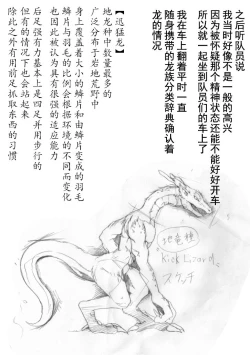 之后听队员说
我当时好像不是一般的高兴
因为被怀疑那个精神状态还能不能好好开车
所以就一起坐到队员们的车上了
我在车上翻着平时一直
随身携带的龙族分类辞典确认着
龙的情况
【迅猛龙】
地龙种中数量最多的
广泛分布于岩地荒野中
身上覆盖着大小的鳞片和由鳞片变成的羽毛
鳞片与羽毛的比例会根据环境的不同而变化
也因此被认为具有很强的适应能力
后足强有力基本上是四足并用步行的
但有的情况下也会站起来
除此之外有用前足抓取东西的习惯
地竜種
Kick Lizard
スケッチ